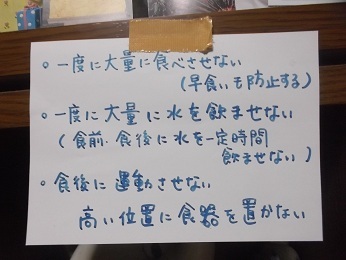 ○ 一度に大量に食べさせない
(早食いも防止する)
○ 一度に大量に水を飲ませない
(食前・食後に水を一定時間
飲ませない)
○ 食後に運動させない
高い位置に食器を置かない